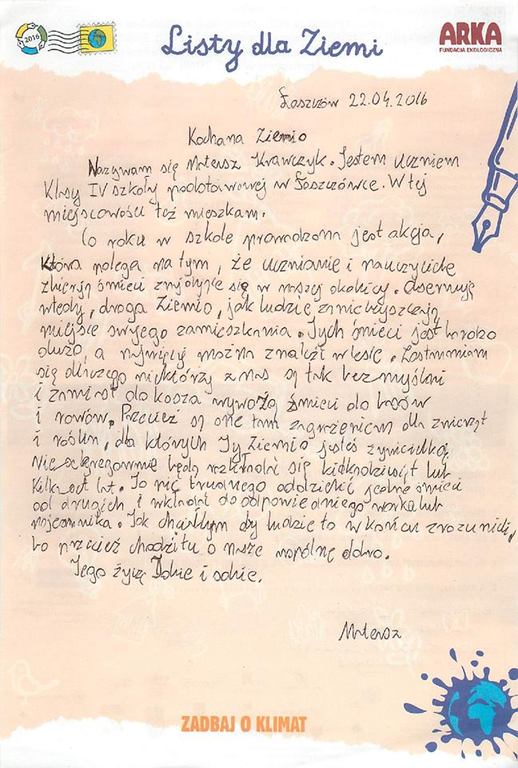 2016
Listy dla Ziemi
ARKA
FUNDACJA EKOLOGICZNA
Łaszczów 22.04.2016
Kochana Ziemio
Nazywam się Mateusz Krawczyk. Jestem uczniem
klasy IV szkoły podstawowej w Łaszczówce. W tej
miejscowości też mieszkam.
Co roku w szkole prowadzona jest akcja,
która polega na tym, że uczniowie i nauczyciele
zbierają śmieci znajdujące się w naszej okolicy.
wtedy, droga Ziemio, jak ludzie zanieczyszczają
miejsce swojego zamieszkania. Tych śmieci jest bardzo
dużo, a najwięcej można znaleźć w lesie. Zastanawiam
się dlaczego niektórzy z nas są tak bezmyślni
i zamiast do kosza wywożą śmieci do lasów
i rowów. Przecież są one tam zagrożeniem dla zwierząt
i roślin, dla których Ty Ziemio jesteś żywicielką.
Nie segregowane będą rozkładać się kilkadziesiąt lub
kilkaset lat. To nic trudnego oddzielić jedne śmieci
od drugich i wkładać do odpowiedniego worka lub
pojemnika. Jak chciałbym by ludzie to w końcu zrozumieli,
bo przecież chodzi tu o nasze wspólne dobro.
Tego życzę Tobie i sobie.
Mateusz
ZADBAJ O KLIMAT